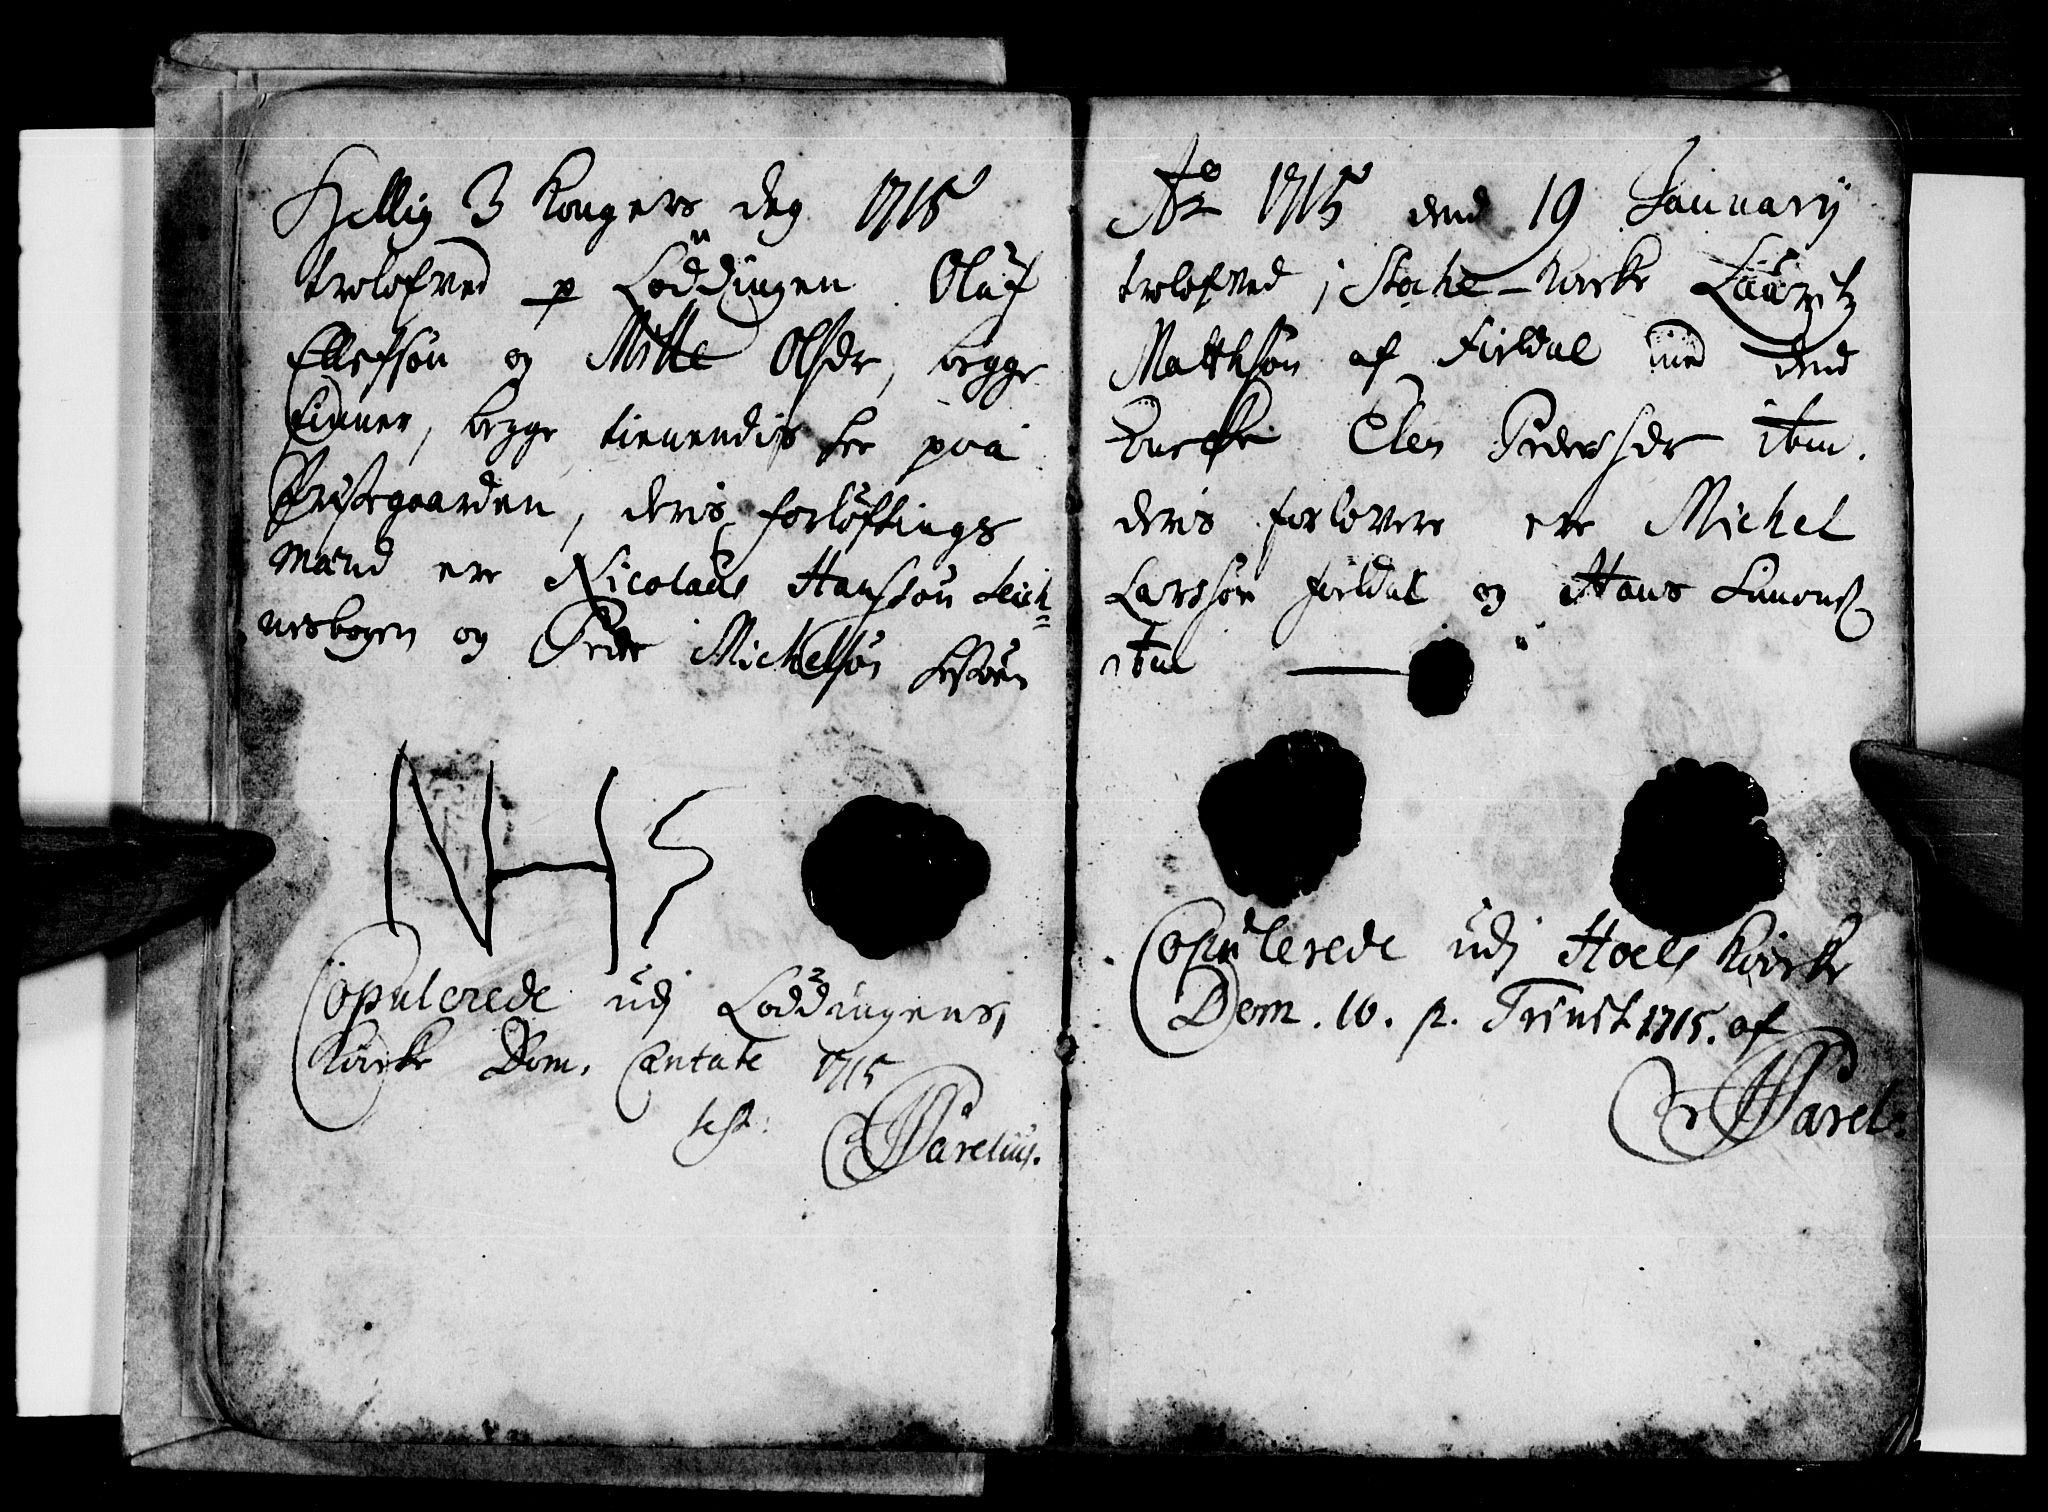 Hellig 3 Kongers dag 1715
trolofved p Løddingen Oluf
Ellefsøn og Mitte Olsdr, begge
Finner, begge tienendis her paa
Præstegaarden, deris forløftings
mænd ere Nicolaus Hansøn Leich=
nesbogen og Peder Michelsøn
NHS
Copulerede udj Løddingens
Kircke Dom. Cantate 1715
test:
Parelius.
Ao 1715 dend 19 January
trolofved i Stahe-Kircke Lauritz
Matthsøn af Fieldal med dend
Encke Elen Pedersdr ibm.
deris forlovere ere Michel
Larssøn Fieldal og Hans Simons
ibm
Copulerede udj Hoels Kircke
Dom. 10. p. Trinit 1715. af
Parel.